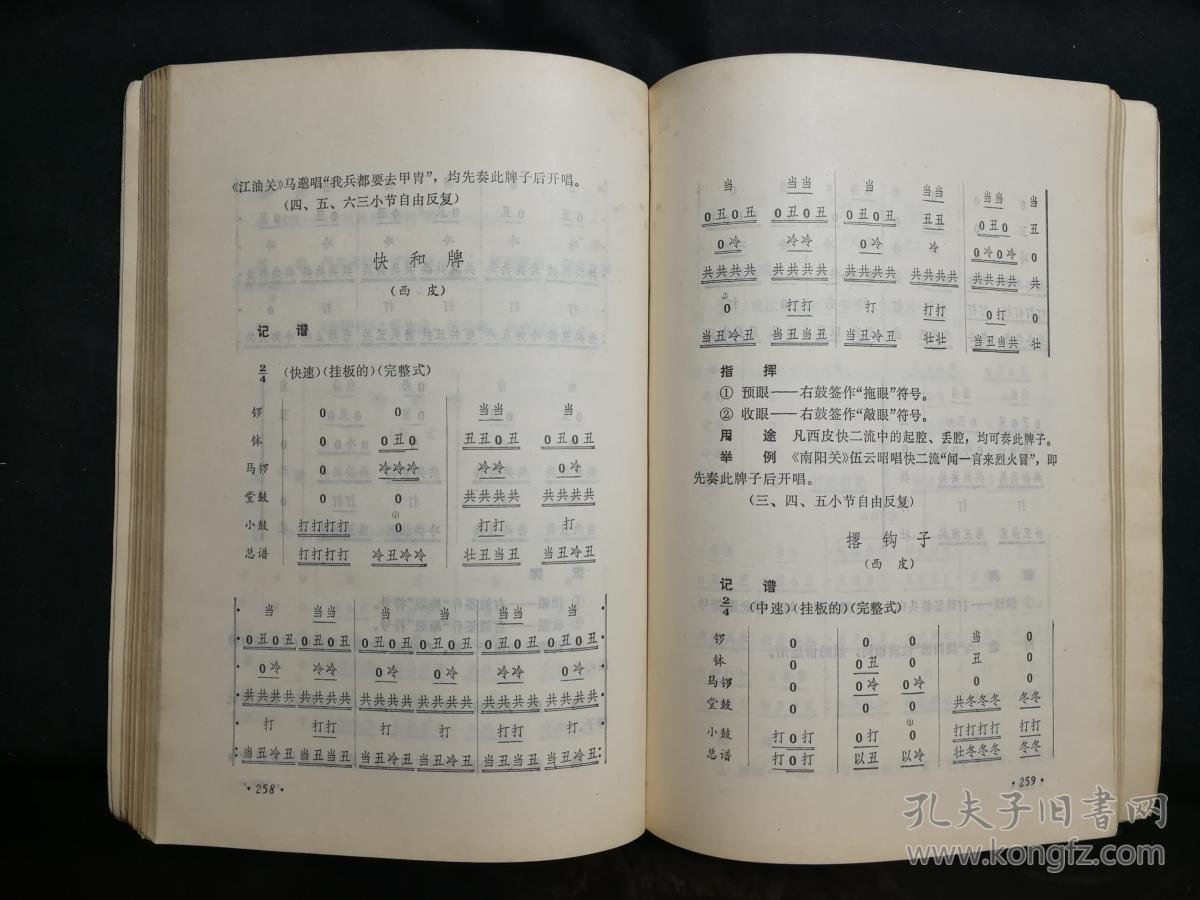 《江油关》马邈唱“我兵都要去甲胄”，均先奏此牌子后开唱。
（四、五、六三小节自由反复）
快和牌
（西皮）
记谱
2/4 （快速）（挂板的）（完整式）
锣 0 0 当当 当
钵 0 0丑0 丑丑0丑 0丑0丑
马锣 0 冷冷冷 冷冷 0冷
堂鼓 0 0 共共共共 共共共共
小鼓 打打打打 ①0 打打 打
总谱 打打打打 冷丑冷冷 壮丑当丑 当丑冷丑
当 当当 当 当当 当当 当
0丑0丑 0丑0丑 0丑0丑 0丑0丑 0丑0丑 0丑0丑
0冷 冷冷 0冷 0冷 冷冷 0冷
共共共共 共共共共 共共共共 共共共共 共共共共 共共共共
打 打打 打 打 打打 打
当丑冷丑 当丑当丑 当丑冷丑 当丑冷丑 当丑当丑 当丑冷丑
·258·
当 当当 当 当当 当当 当
0丑0丑 0丑0丑 0丑0丑 丑丑 0丑0 丑
0冷 冷冷 0冷 冷 0冷0冷
共共共共 共共共共 共共共共 共共共共 共共共共 共
②0 打打 打 打打 0打 0
当丑冷丑 当丑当丑 当丑冷丑 壮壮 当丑当共 壮
指挥
① 预眼——右鼓签作“拖眼”符号。
② 收眼——右鼓签作“敲眼”符号。
用途 凡西皮快二流中的起腔、丢腔，均可奏此牌子。
举例 《南阳关》伍云昭唱快二流“闻一言来烈火冒”，即
先奏此牌子后开唱。
（三、四、五小节自由反复）
撂钩子
（西皮）
记谱
2/4 （中速）（挂板的）（完整式）
锣 0 0 当 0
钵 0 0丑 丑 0
马锣 0 0冷 0冷 0 0
堂鼓 0 0 0 共冬冬冬 冬冬
小鼓 打0打 0打 ①0 打打打打 打打
总谱 打0打 以丑 以冷 壮冬冬冬 冬冬
·259·
孔夫子旧书网
www.kongfz.com